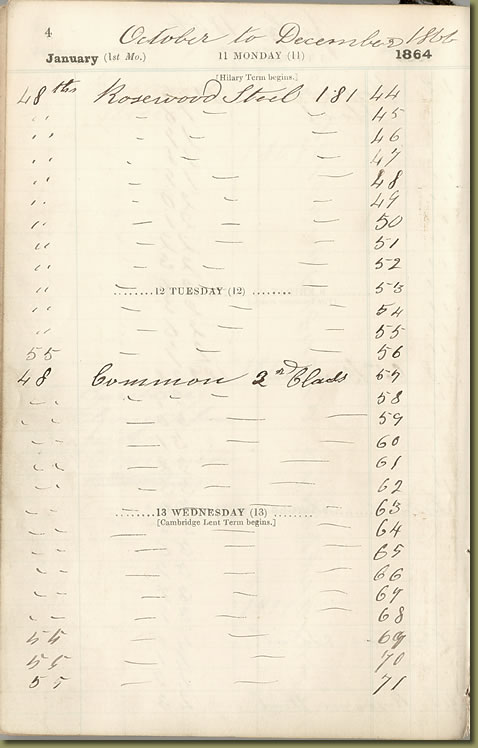 4 October to December 1866
January (1st Mo.) 11 MONDAY (11) 1864
[Hilary Term begins.]
48ths Rosewood Steel 181 44
" — — — 45
" — — — 46
" — — — 47
" — — — 48
" — — — 49
" — — — 50
" — — — 51
" — — — 52
" ........12 TUESDAY (12) ........ — 53
" — — — 54
" — — — 55
55 — — — 56
48 Common 2nd Class 57
" — — — 58
" — — — 59
" — — — 60
" — — — 61
" — — — 62
" — — — 63
........13 WEDNESDAY (13) ........
[Cambridge Lent Term begins.]
" — — — 64
" — — — 65
" — — — 66
" — — — 67
" — — — 68
55 — — — 69
55 — — — 70
55 — — — 71